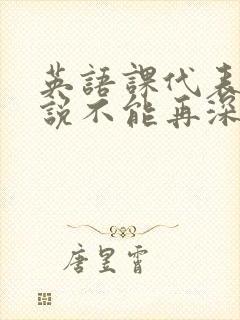 英語課代表
說不能再深
唐昱霄